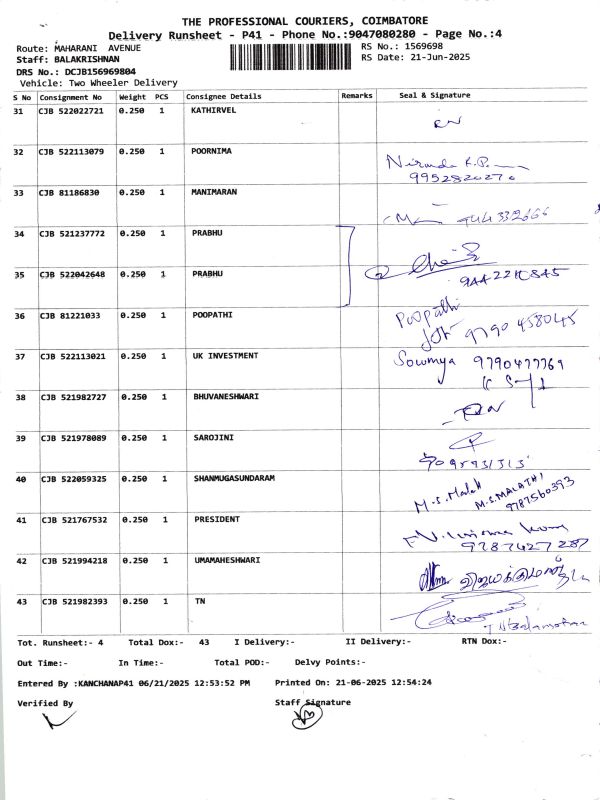 THE PROFESSIONAL COURIERS, COIMBATORE
Delivery Runsheet - P41 - Phone No.:9047080280 - Page No.:4
Route: MAHARANI AVENUE
RS No.: 1569698
Staff: BALAKRISHNAN
RS Date: 21-Jun-2025
DRS No.: DCJB156969804
Vehicle: Two Wheeler Delivery
S No Consignment No Weight PCS Consignee Details Remarks Seal & Signature
31 CJB 522022721 0.250 1 KATHIRVEL
32 CJB 522113079 0.250 1 POORNIMA
33 CJB 81186830 0.250 1 MANIMARAN
34 CJB 521237772 0.250 1 PRABHU
35 CJB 522042648 0.250 1 PRABHU
9442210845
36 CJB 81221033 0.250 1 POOPATHI Poopathi
9790458045
37 CJB 522113021 0.250 1 UK INVESTMENT Sowmya 9790477769
38 CJB 521982727 0.250 1 BHUVANESHWARI
39 CJB 521978089 0.250 1 SAROJINI
40 CJB 522059325 0.250 1 SHANMUGASUNDARAM M.S.MALATHI
9787560393
41 CJB 521767532 0.250 1 PRESIDENT
9787427287
42 CJB 521994218 0.250 1 UMAMAHESHWARI
43 CJB 521982393 0.250 1 TN
Tot. Runsheet:- 4 Total Dox:- 43 I Delivery:- II Delivery:- RTN Dox:-
Out Time:- In Time:- Total POD:- Delvy Points:-
Entered By :KANCHANAP41 06/21/2025 12:53:52 PM Printed On: 21-06-2025 12:54:24
Verified By Staff Signature